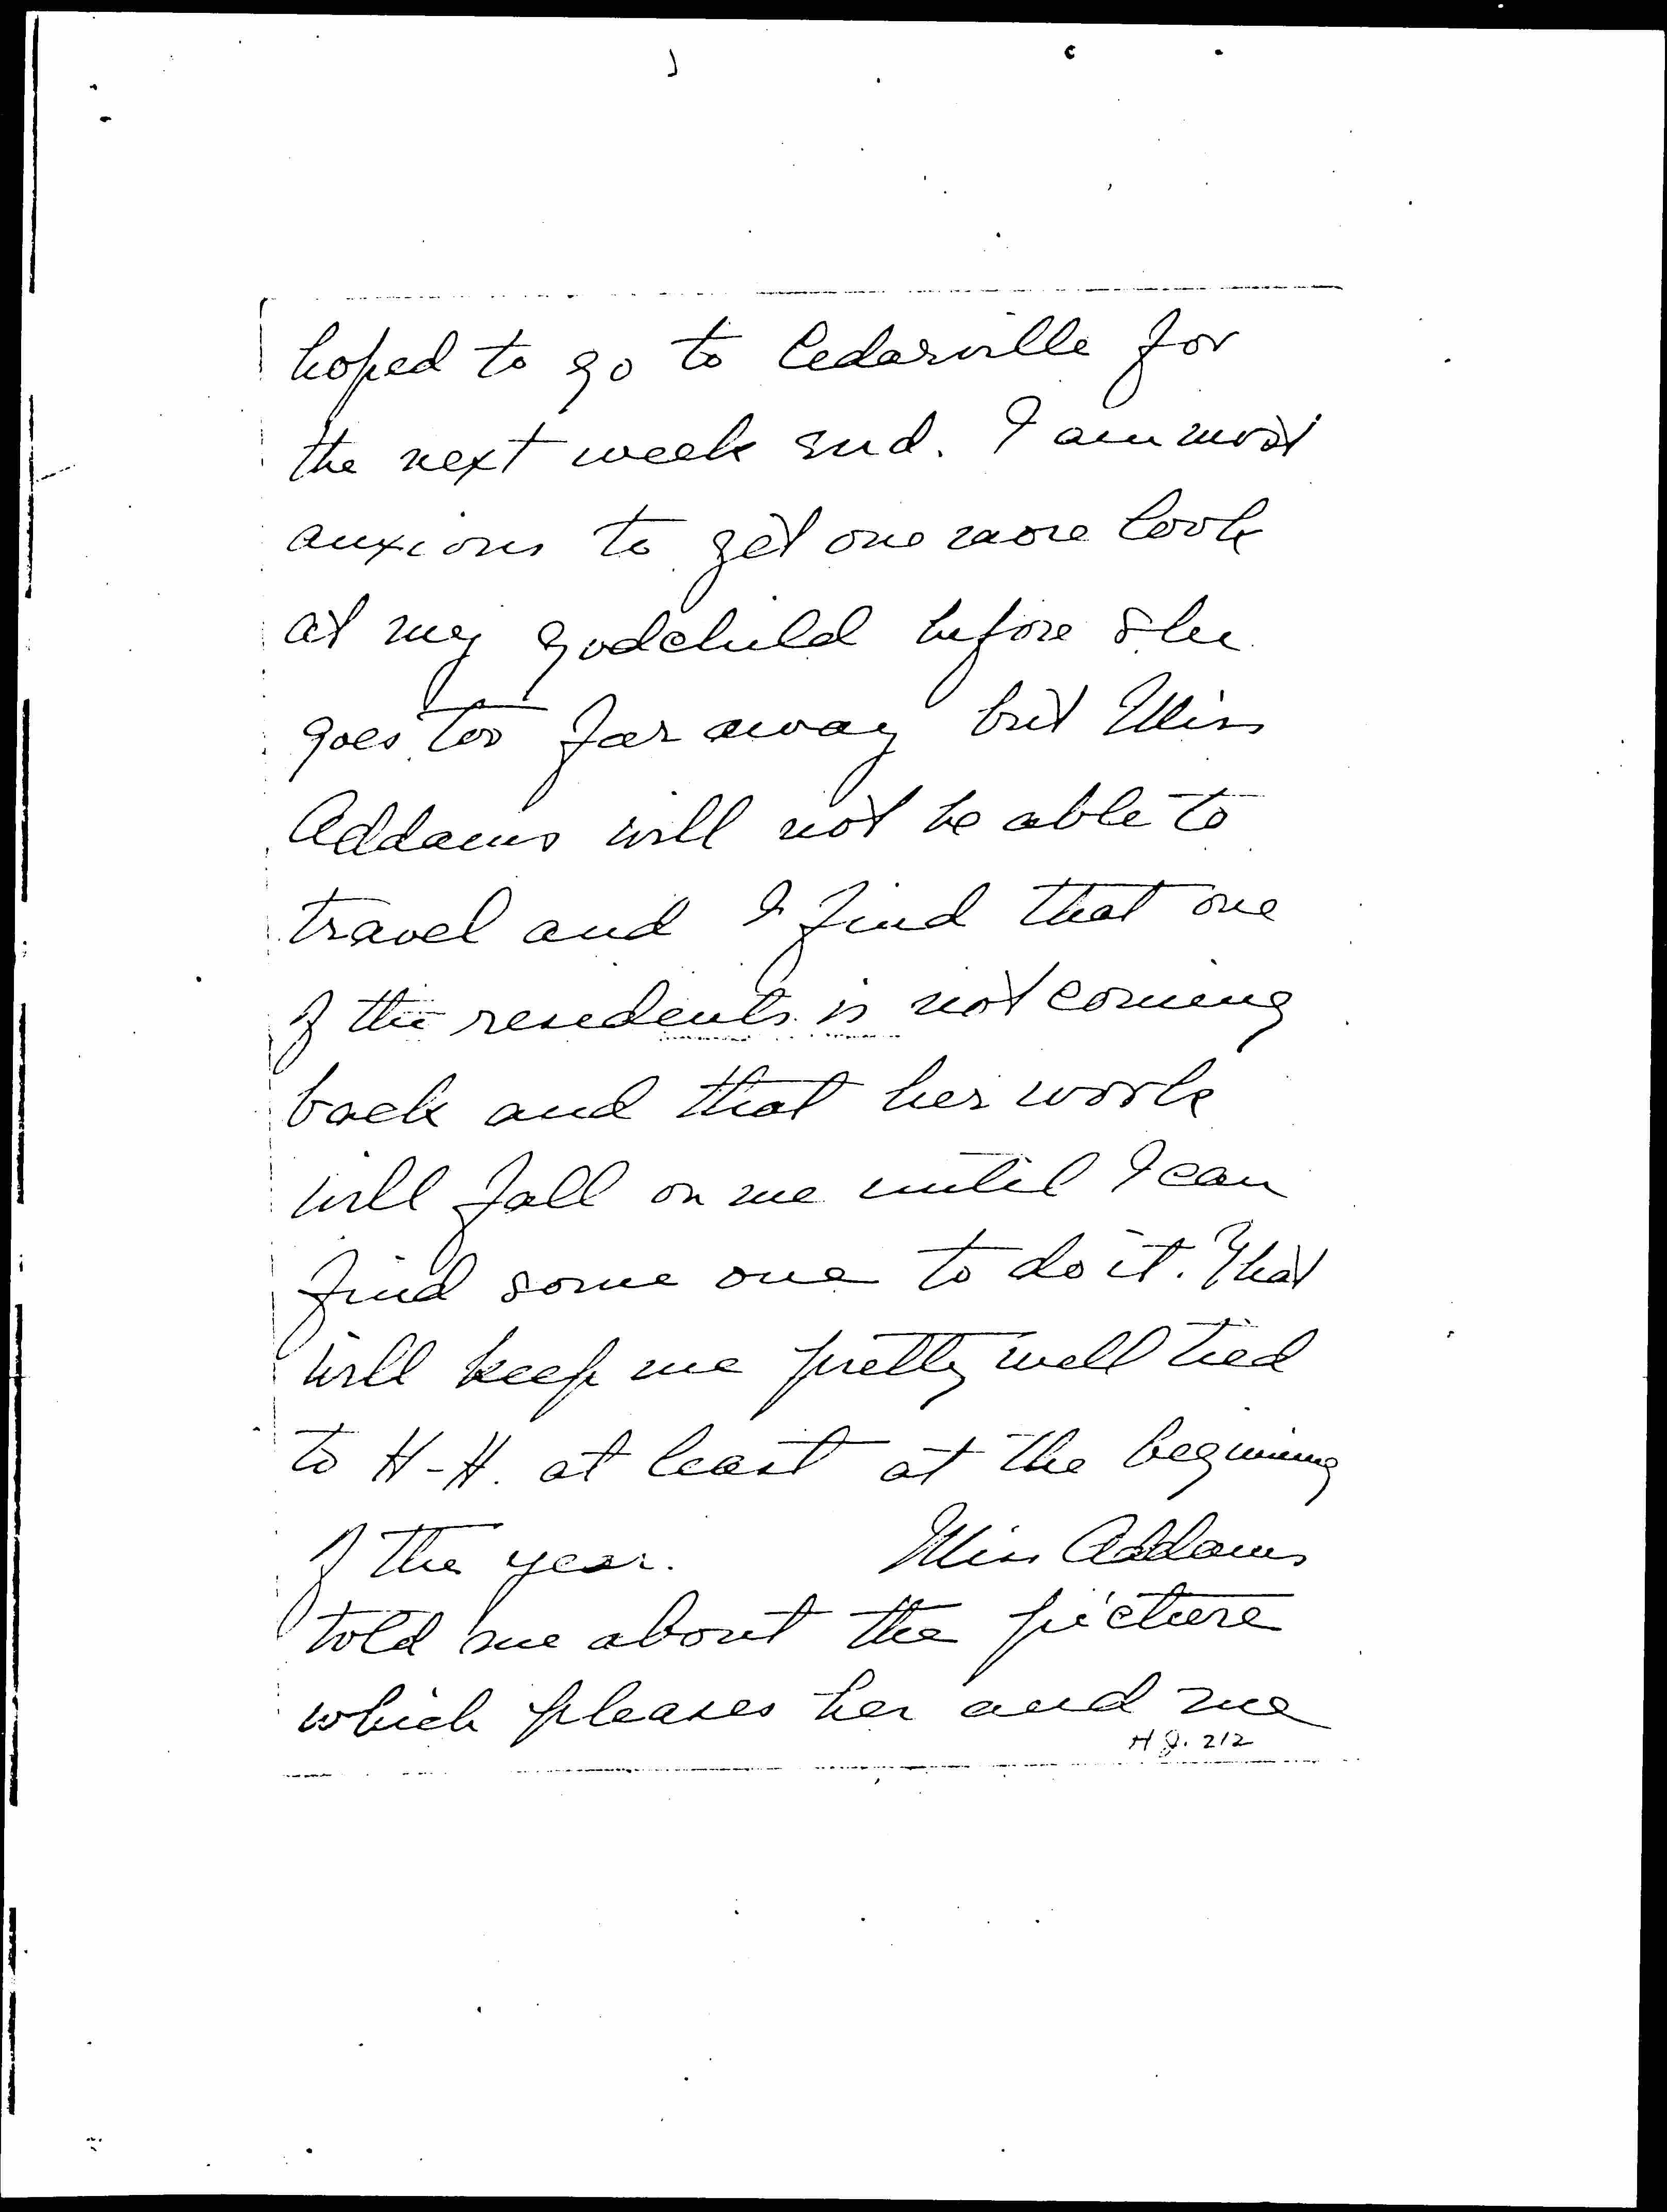 hoped to go to Cedarville for
the next week end. I am most
anxious to get one more look
at my godchild before she
goes too far away but Miss
Addams will not be able to
travel and I find that one
of the residents is not coming
back and that her work
will fall on me until I can
find some one to do it. That
will keep me pretty well tied
to H-H. at least at the beginning
of the year. Miss Addams
told me about the picture
which pleases her and me
HJ. 212